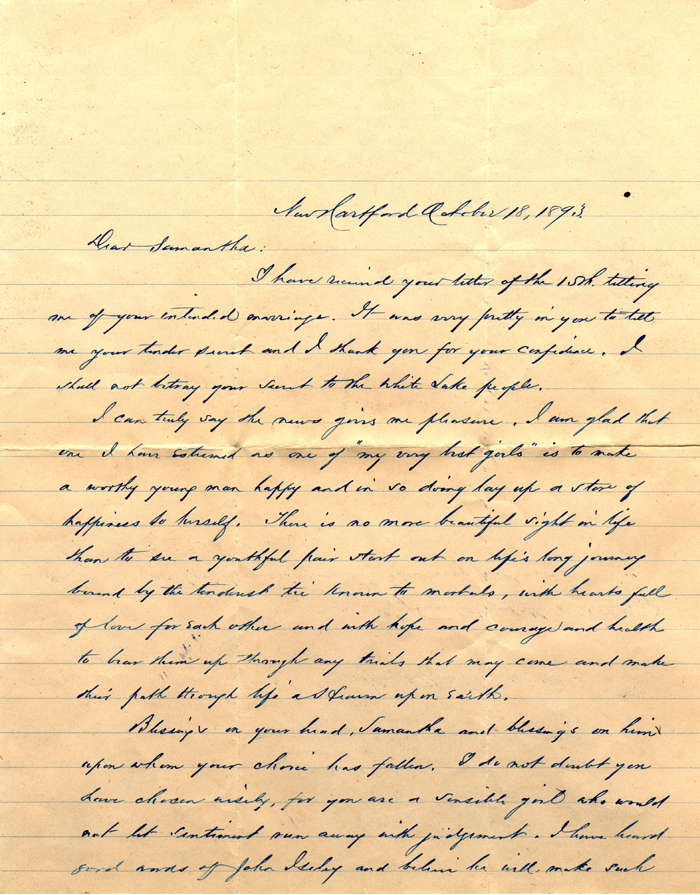 New Hartford October 18, 1893
Dear Samantha:
I have received your letter of the 15th. telling
me of your intended marriage. It was very pretty in you to tell
me your tender secret and I thank you for your confidence. I
shall not betray your secret to the White Lake people.
I can truly say the news gives me pleasure. I am glad that
one I have esteemed as one of "my very best girls" is to make
a worthy young man happy and in so doing lay up a store of
happiness to herself. There is no more beautiful sight in life
than to see a youthful pair start out on life's long journey
bound by the tenderest tie known to mortals, with hearts full
of love for each other and with hope and courage and health
to bear them up through any trials that may come and make
their path through life a Heaven upon Earth.
Blessings on your head, Samantha and blessings on him
upon whom your choice has fallen. I do not doubt you
have chosen wisely, for you are a sensible girl who would
not let sentiment run away with judgement. I have heard
good words of John Iseley and believe he will make such